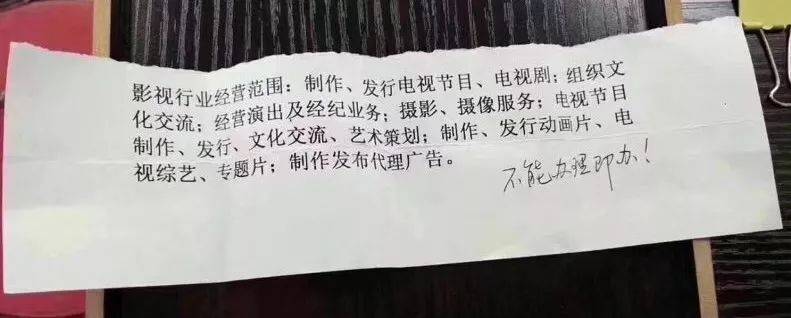 影视行业经营范围：制作、发行电视节目、电视剧；组织文
化交流；经营演出及经纪业务；摄影、摄像服务；电视节目
制作、发行、文化交流、艺术策划；制作、发行动画片、电
视综艺、专题片；制作发布代理广告。
不能办理即办！